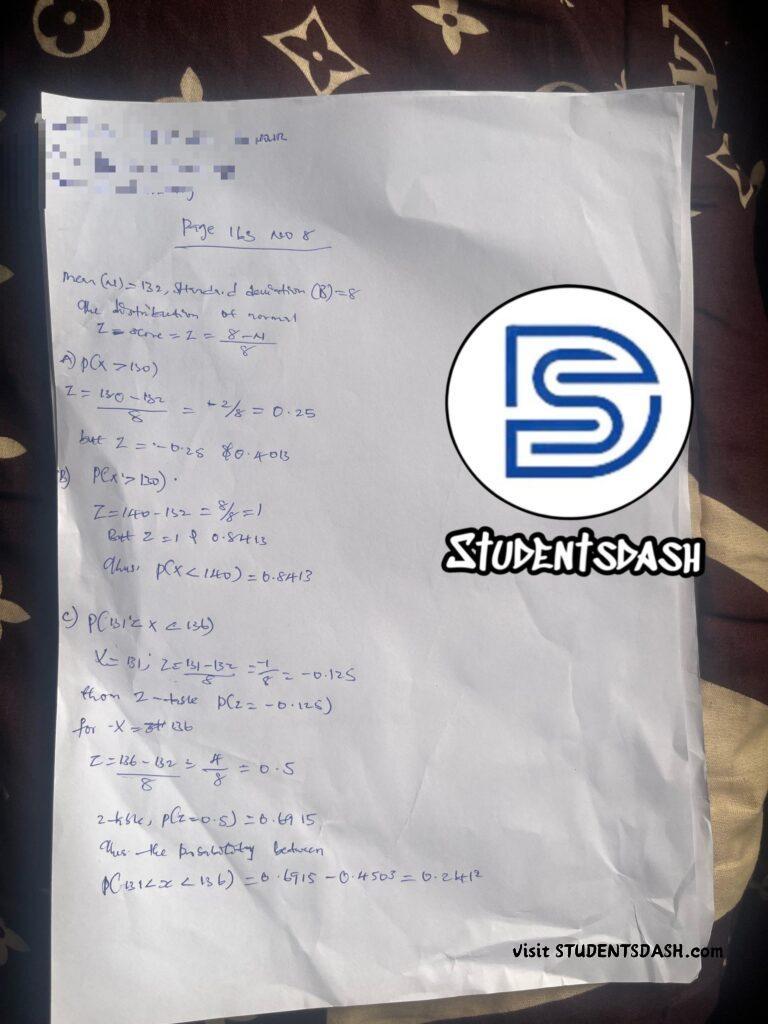 Page 163 NO 8
Mean (M) = 132, Standard deviation (B) = 8
The distribution of normal
Z-score = Z = 8-M/8
A) P(X > 130)
Z = 130 - 132/8 = -2/8 = 0.25
but Z = -0.25 & 0.4013
B) P(X > 130).
Z = 140 - 132 = 8/8 = 1
But Z = 1 & 0.8413
Thus, P(X < 140) = 0.8413
C) P(131 < X < 136)
X = 131; Z = 131 - 132/8 = -1/8 = -0.125
Z-table P(Z = -0.125)
for -X = 136
Z = 136 - 132/8 = 4/8 = 0.5
Z-table, P(Z = 0.5) = 0.6915
Thus the between
P(131 < x < 136) = 0.6915 - 0.4503 = 0.2412
STUDENTSDASH
visit STUDENTSDASH.com